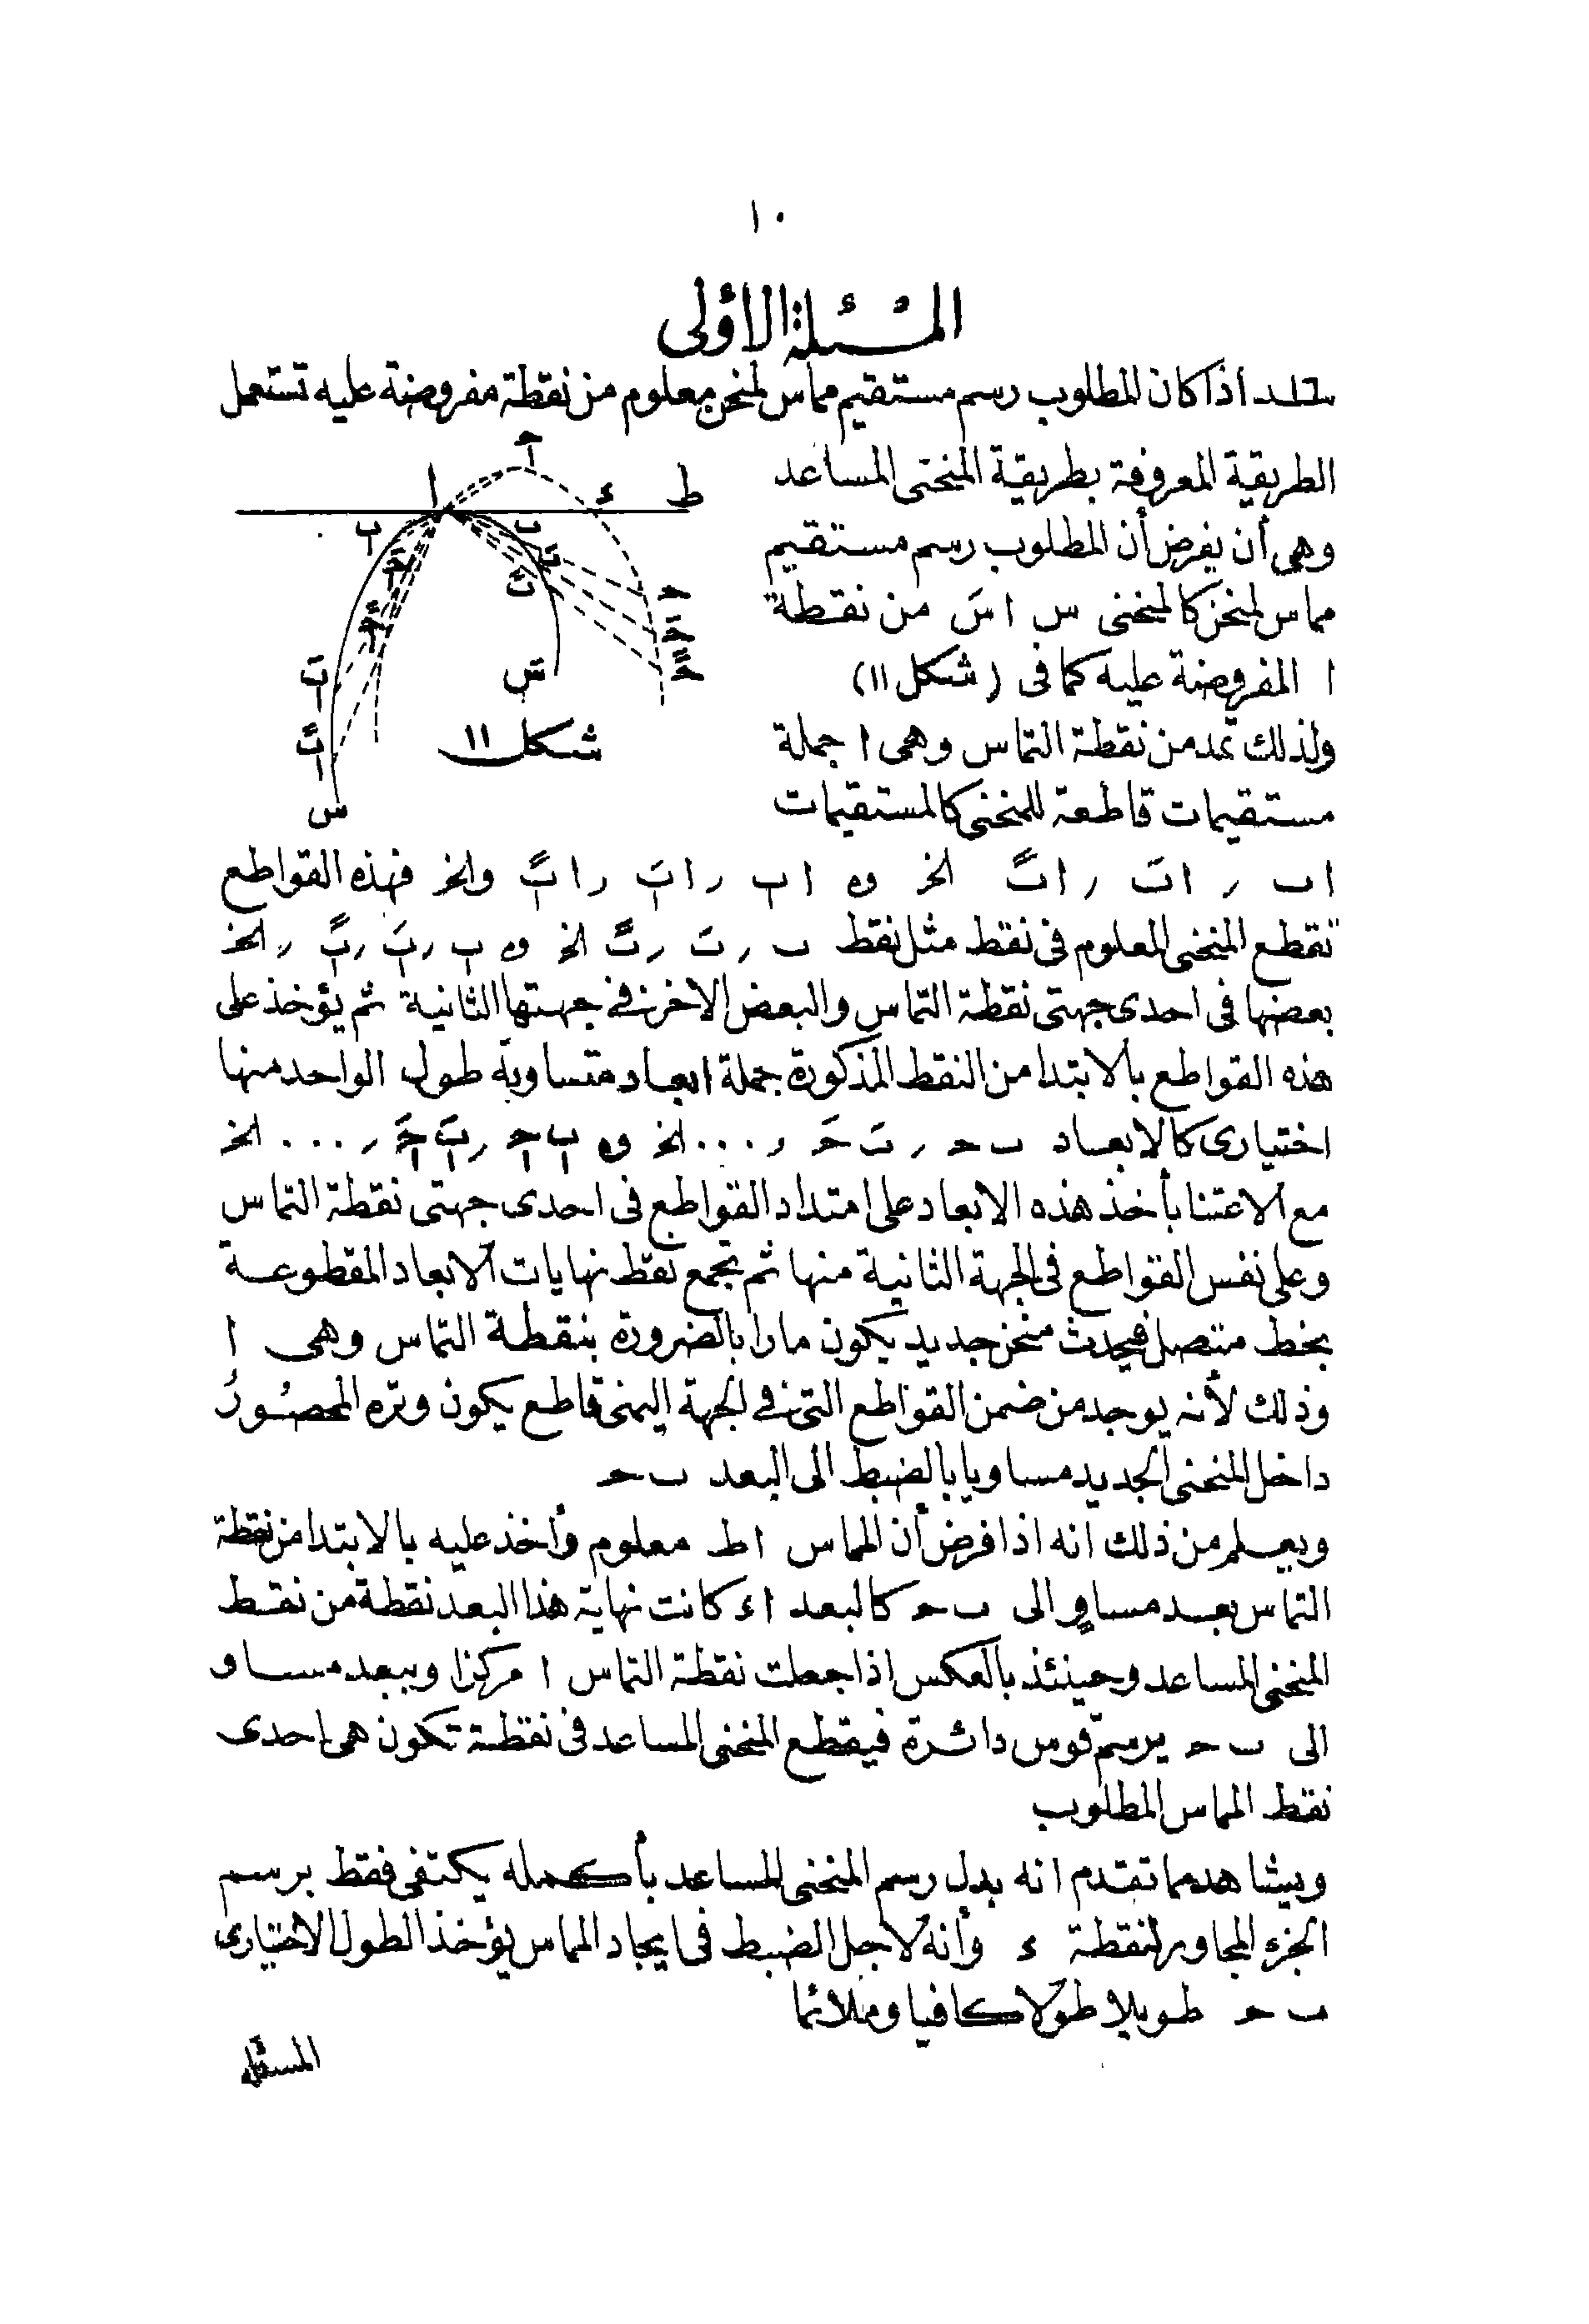 ١٠
المسئلة الأولى
اذا كان المطلوب رسم مستقيم مماس لمنحن معلوم من نقطة مفروضة عليه تستعمل
الطريقة المعروفة بطريقة المنحنى المساعد
وهى أن يفرض أن المطلوب رسم مستقيم
مماس لمنحن كالمنحنى س ا سَ من نقطة
ا المفروضة عليه كما فى (شكل ١١)
ولذلك تمد من نقطة التماس وهى ا جملة
مستقيمات قاطعة للمنحنى كالمستقيمات
ا ط ء حـ
ب
س سَ
شكل ١١
اب ر ابَ ر ابً الخ و اب ر ابَ ر ابً والخ فهذه القواطع
تقطع المنحنى المعلوم فى نقط مثل نقط ب ر بَ ر بً الخ و ب ر بَ ر بً ر الخ
بعضها فى احدى جهتى نقطة التماس والبعض الاخر فى جهتها الثانية ثم يؤخذ على
هذه القواطع بالابتدا من النقط المذكورة جملة ابعاد متساوية طول الواحد منها
اختيارى كالابعاد ب حـ ر بَ حـَ ر ... الخ و ب حـ ر بَ حـَ ر ... الخ
مع الاعتنا بأخذ هذه الابعاد على امتداد القواطع فى احدى جهتى نقطة التماس
وعلى نفس القواطع فى الجهة الثانية منها ثم تجمع نقط نهايات الابعاد المقطوعة
بخط متصل فيحدث منحن جديد يكون مارا بالضرورة بنقطة التماس وهى ا
وذلك لأنه يوجد من ضمن القواطع التى فى الجهة اليمنى قاطع يكون وتره المحصور
داخل المنحنى الجديد مساويا بالضبط الى البعد ب حـ
ويعلم من ذلك انه اذا فرض أن المماس اط معلوم وأخذ عليه بالابتدا من نقطة
التماس بعد مساوٍ الى ب حـ كالبعد اء كانت نهاية هذا البعد نقطة من نقط
المنحنى المساعد وحينئذ بالعكس اذا جعلت نقطة التماس ا مركزا وببعد مساو
الى ب حـ يرسم قوس دائرة فيقطع المنحنى المساعد فى نقطة تكون هى احدى
نقط المماس المطلوب
ويشاهد مما تقدم انه بدل رسم المنحنى المساعد بأكمله يكتفى فقط برسم
الجزء المجاور لنقطة ء وأنه لاجل الضبط فى ايجاد المماس يؤخذ الطول الاختيارى
ب حـ طويلا طولا كافيا وملائما
المسئلة